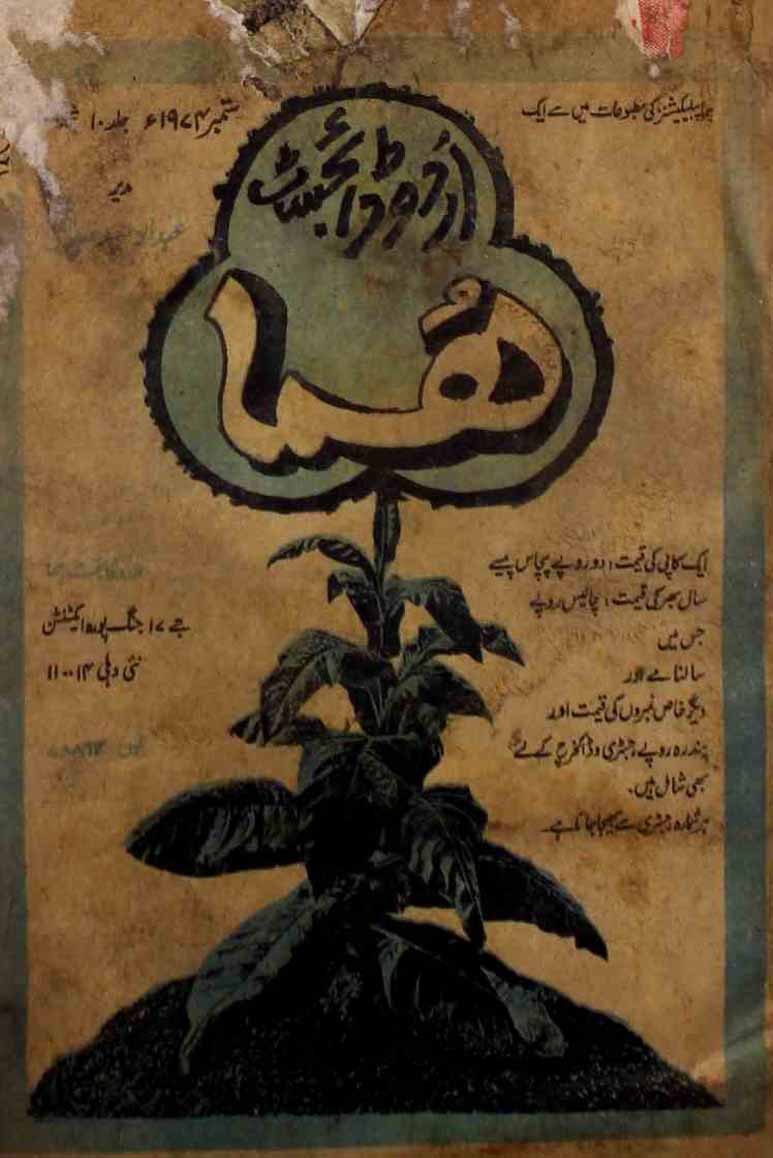 ہما پبلیکیشنز کی مطبوعات میں سے ایک
ستمبر ۱۹۷۴ء جلد ۱۰
مدیر
اُردو ڈائجسٹ
ہُما
ایک کاپی کی قیمت: دو روپے پچاس پیسے
سال بھر کی قیمت: چالیس روپے
جس میں
سالنامے اور
دیگر خاص نمبروں کی قیمت اور
پندرہ روپے رجسٹری و ڈاک خرچ کے لئے
بھی شامل ہیں۔
ہر شمارہ رجسٹری سے بھیجا جاتا ہے۔
جے ۱۷ جنگ پورہ ایکسٹنشن
نئی دہلی ۱۱۰۰۱۴